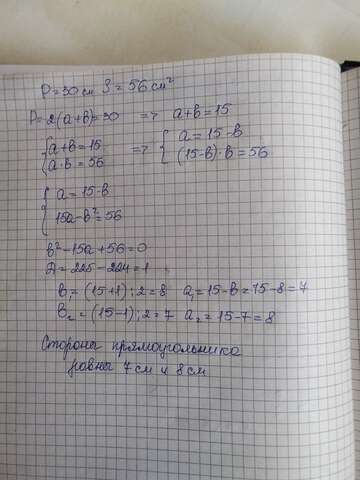 P=30 см S=56 см²
P=2(a+b)=30 => a+b=15
{a+b=15 => {a=15-b
{a·b=56 {(15-b)·b=56
{a=15-b
{15a-b²=56
b²-15a+56=0
D=225-224=1
b₁=(15+1):2=8 a₁=15-b=15-8=7
b₂=(15-1):2=7 a₂=15-7=8
Стороны прямоугольника
равны 7 см и 8 см